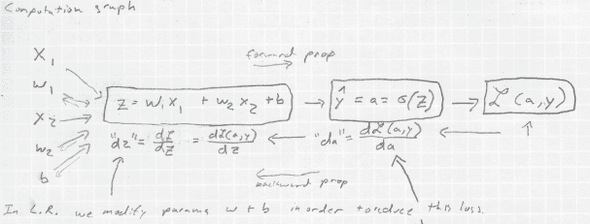 Computation graph
x₁
w₁
x₂
w₂
b
forward prop
z = w₁x₁ + w₂x₂ + b → ŷ = a = σ(z) → ℒ(a,y)
"dz" = dℒ/dz = dℒ(a,y)/dz ← "da" = dℒ(a,y)/da ←
backward prop
In L.R. we modify params w + b in order to reduce this loss.